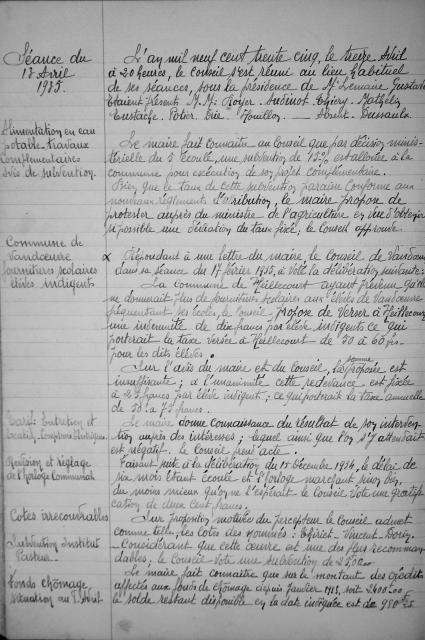 Séance du
13 Avril
1935.
L'an mil neuf cent trente cinq, le treize Avril
à 20 heures, le Conseil s'est réuni au lieu habituel
de ses séances, sous la présidence de Mr Lemaire Gustave
Etaient présents M.M. Royer. Audinot. Thiéry. Mathely
Eustache. Potier. Brie. Houillon. — Absent. Dussaulx
Alimentation en eau
potable. travaux
complémentaires
Avis de subvention.
Le maire fait connaitre au Conseil que par décision minis-
térielle du 5 écoulé, une subvention de 15% est allouée à la
commune pour exécution de son projet complémentaire.
Bien que le taux de cette subvention paraisse conforme aux
nouveaux règlements d'attribution, le maire propose de
protester auprès du ministre de l'agriculture en vue d'obtenir
si possible une élévation du taux fixé; le Conseil approuve.
Commune de
Vandœuvre
fournitures scolaires
élèves indigents
x Répondant à une lettre du maire, le Conseil de Vandœuvre
dans sa séance du 17 février 1935, a voté la délibération suivante:
La commune de Heillecourt ayant prévenu qu'elle
ne donnerait plus de fournitures scolaires aux élèves de Vandœuvre
fréquentant ses écoles, le Conseil propose de verser à Heillecourt
une indemnité de dix francs par élève indigents ce qui
porterait la taxe versée à Heillecourt de 50 à 60 frs
pour les dits élèves.
Sur l'avis du maire et du Conseil, la somme proposée est
insuffisante; à l'unanimité cette redevance est fixée
à 25 francs par élève indigent; ce qui porterait la taxe annuelle
de 50 à 75 francs.
Tarif. Entretien et
Locat. Compteurs électriques
Le maire donne connaissance du résultat de son interven-
tion auprès des intéressés; lequel ainsi que l'on s'y attendait
est négatif. le Conseil prend acte.
Revision et réglage
de l'horloge Communale
Faisant suite à la délibération du 15 décembre 1934, le délai de
six mois étant écoulé et l'horloge marchant sinon bien,
du moins mieux qu'on ne l'espérait. le Conseil vote une gratifi-
cation de deux cent francs.
Cotes irrecouvrables
Sur proposition motivée du Percepteur le Conseil admet
comme telle, les cotes des nommés: Thiriet - Vincent
Subvention Institut
Pasteur
Considérant que cette œuvre est une des plus recomman-
dables, le Conseil vote une subvention de 25,00
Fonds chômage,
situation au 1er Avril
Le maire fait connaitre que sur le montant des crédits
affectés aux fonds de chômage depuis Janvier 1935, soit 2400 00
le solde restant disponible en la date indiquée est de 980